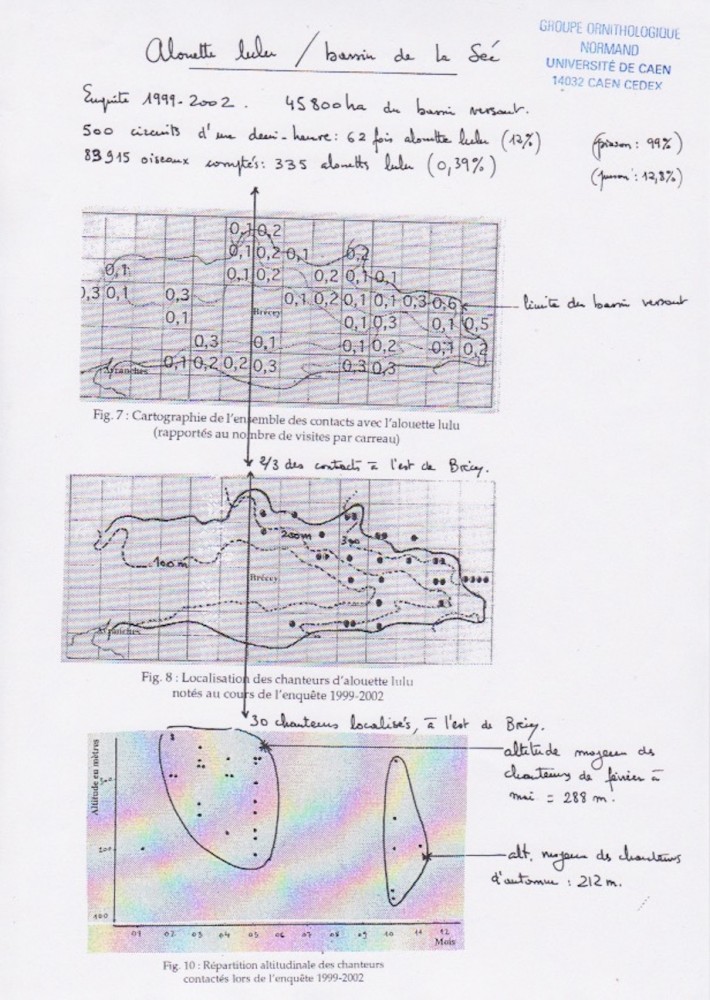 Alouette lulu / bassin de la Sée
GROUPE ORNITHOLOGIQUE
NORMAND
UNIVERSITÉ DE CAEN
14032 CAEN CEDEX
Enquête 1999-2002. 45800ha du bassin versant.
500 circuits d'une demi-heure: 62 fois alouette lulu (12%) (pinson: 99%)
83915 oiseaux comptés: 335 alouettes lulu (0,39%) : 12,8%)
0,1 0,2
0,1 0,2 0,1 0,2
0,1 0,1 0,2 0,2 0,1 0,1
0,3 0,1 0,3 0,1 0,2 0,1 0,1 0,3 0,6 limite du bassin versant
0,1 Brécey 0,1 0,3 0,1 0,5
0,3 0,1 0,1 0,2 0,1 0,2
Avranches 0,1 0,2 0,2 0,3 0,3 0,3
Fig. 7 : Cartographie de l'ensemble des contacts avec l'alouette lulu
(rapportés au nombre de visites par carreau)
2/3 des contacts à l'est de Brécey.
200m 300
100m
Brécey
Avranches
Fig. 8 : Localisation des chanteurs d'alouette lulu
notés au cours de l'enquête 1999-2002
30 chanteurs localisés, à l'est de Brécey.
Altitude en mètres
300
200
100
altitude moyenne des
chanteurs de février à
mai = 288 m.
alt. moyenne des chanteurs
d'automne : 212 m.
01 02 03 04 05 06 07 08 09 10 11 12
Mois
Fig. 10 : Répartition altitudinale des chanteurs
contactés lors de l'enquête 1999-2002